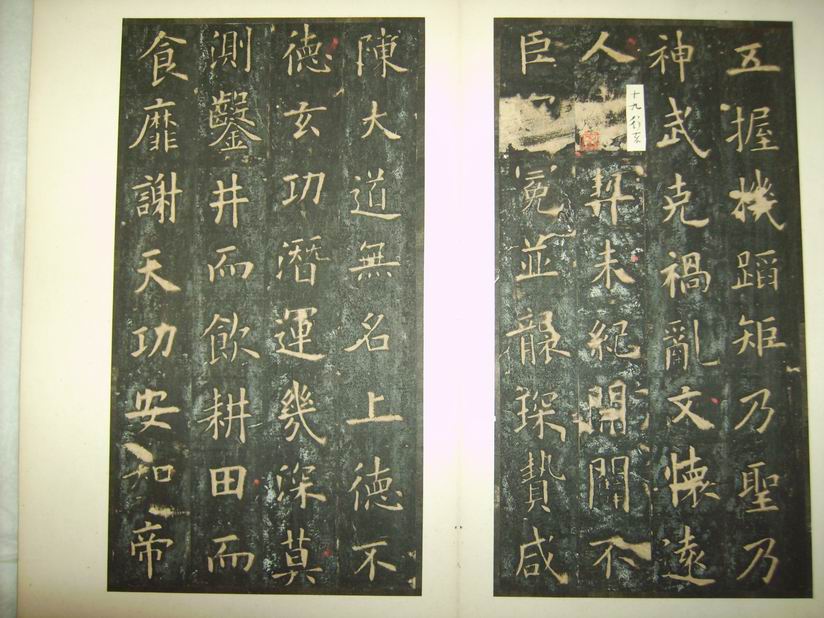 五握機蹈矩乃聖乃
神武克禍亂文懷遠
人契未紀開闢不
臣冕並襲琛贄咸
陳大道無名上德不
德玄功潛運幾深莫
測鑿井而飲耕田而
食靡謝天功安知帝